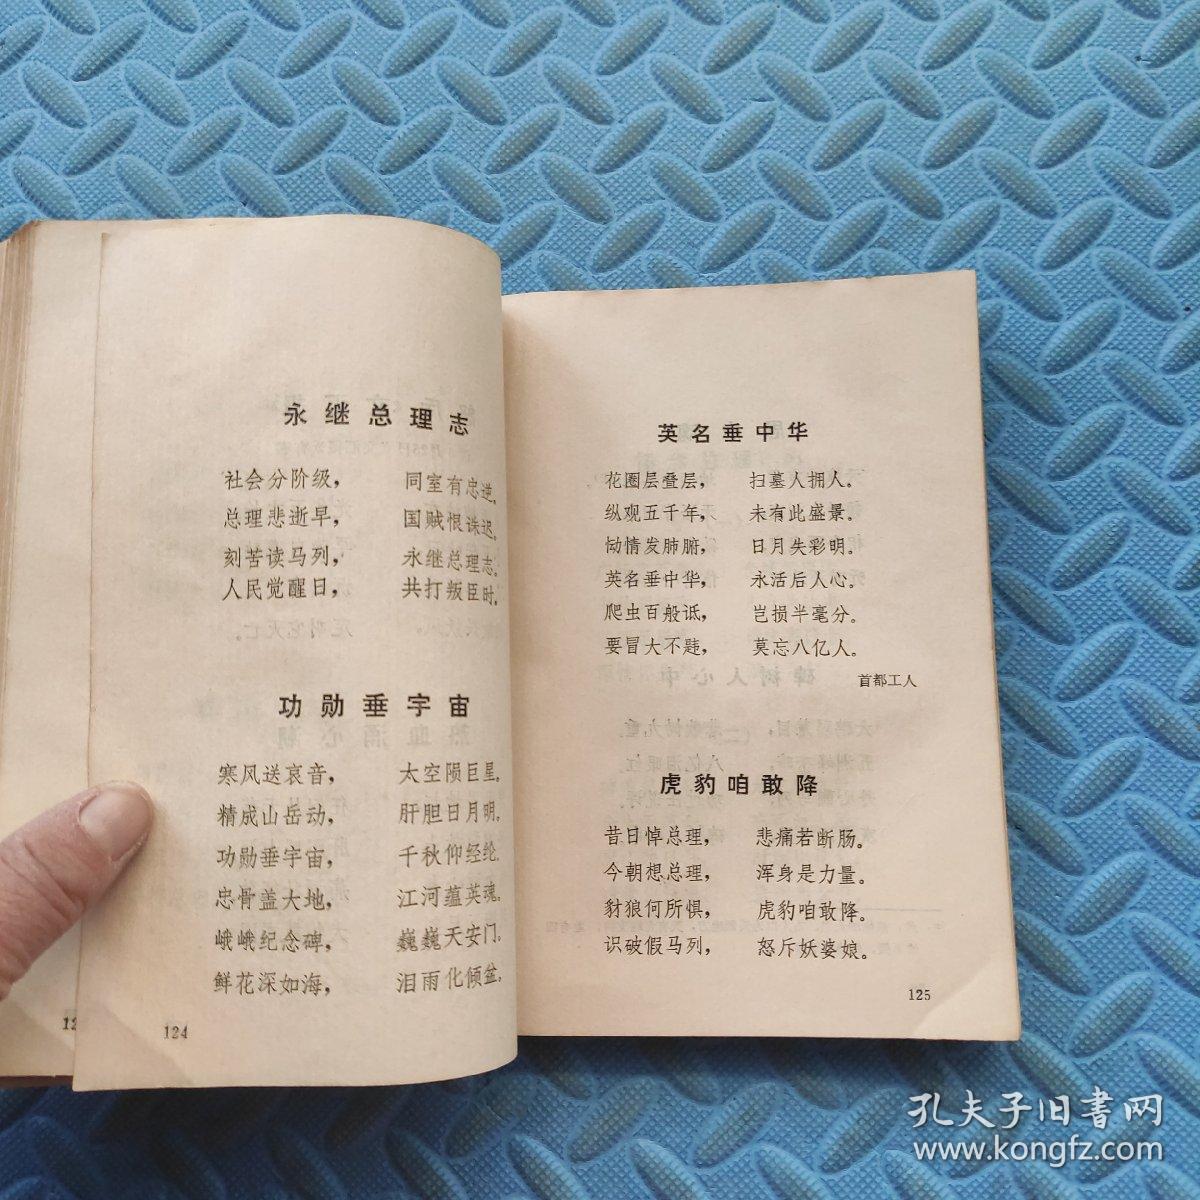 永继总理志
社会分阶级， 同室有忠逆。
总理悲逝早， 国贼恨诛迟。
刻苦读马列， 永继总理志。
人民觉醒日， 共打叛臣时。
功勋垂宇宙
寒风送哀音， 太空陨巨星。
精成山岳动， 肝胆日月明。
功勋垂宇宙， 千秋仰经纶。
忠骨盖大地， 江河蕴英魂。
峨峨纪念碑， 巍巍天安门。
鲜花深如海， 泪雨化倾盆。
124
12
英名垂中华
花圈层叠层， 扫墓人拥人。
纵观五千年， 未有此盛景。
恸情发肺腑， 日月失彩明。
英名垂中华， 永活后人心。
爬虫百般诋， 岂损半毫分。
要冒大不韪， 莫忘八亿人。
首都工人
虎豹咱敢降
昔日悼总理， 悲痛若断肠。
今朝想总理， 浑身是力量。
豺狼何所惧， 虎豹咱敢降。
识破假马列， 怒斥妖婆娘。
125
孔夫子旧书网
www.kongfz.com